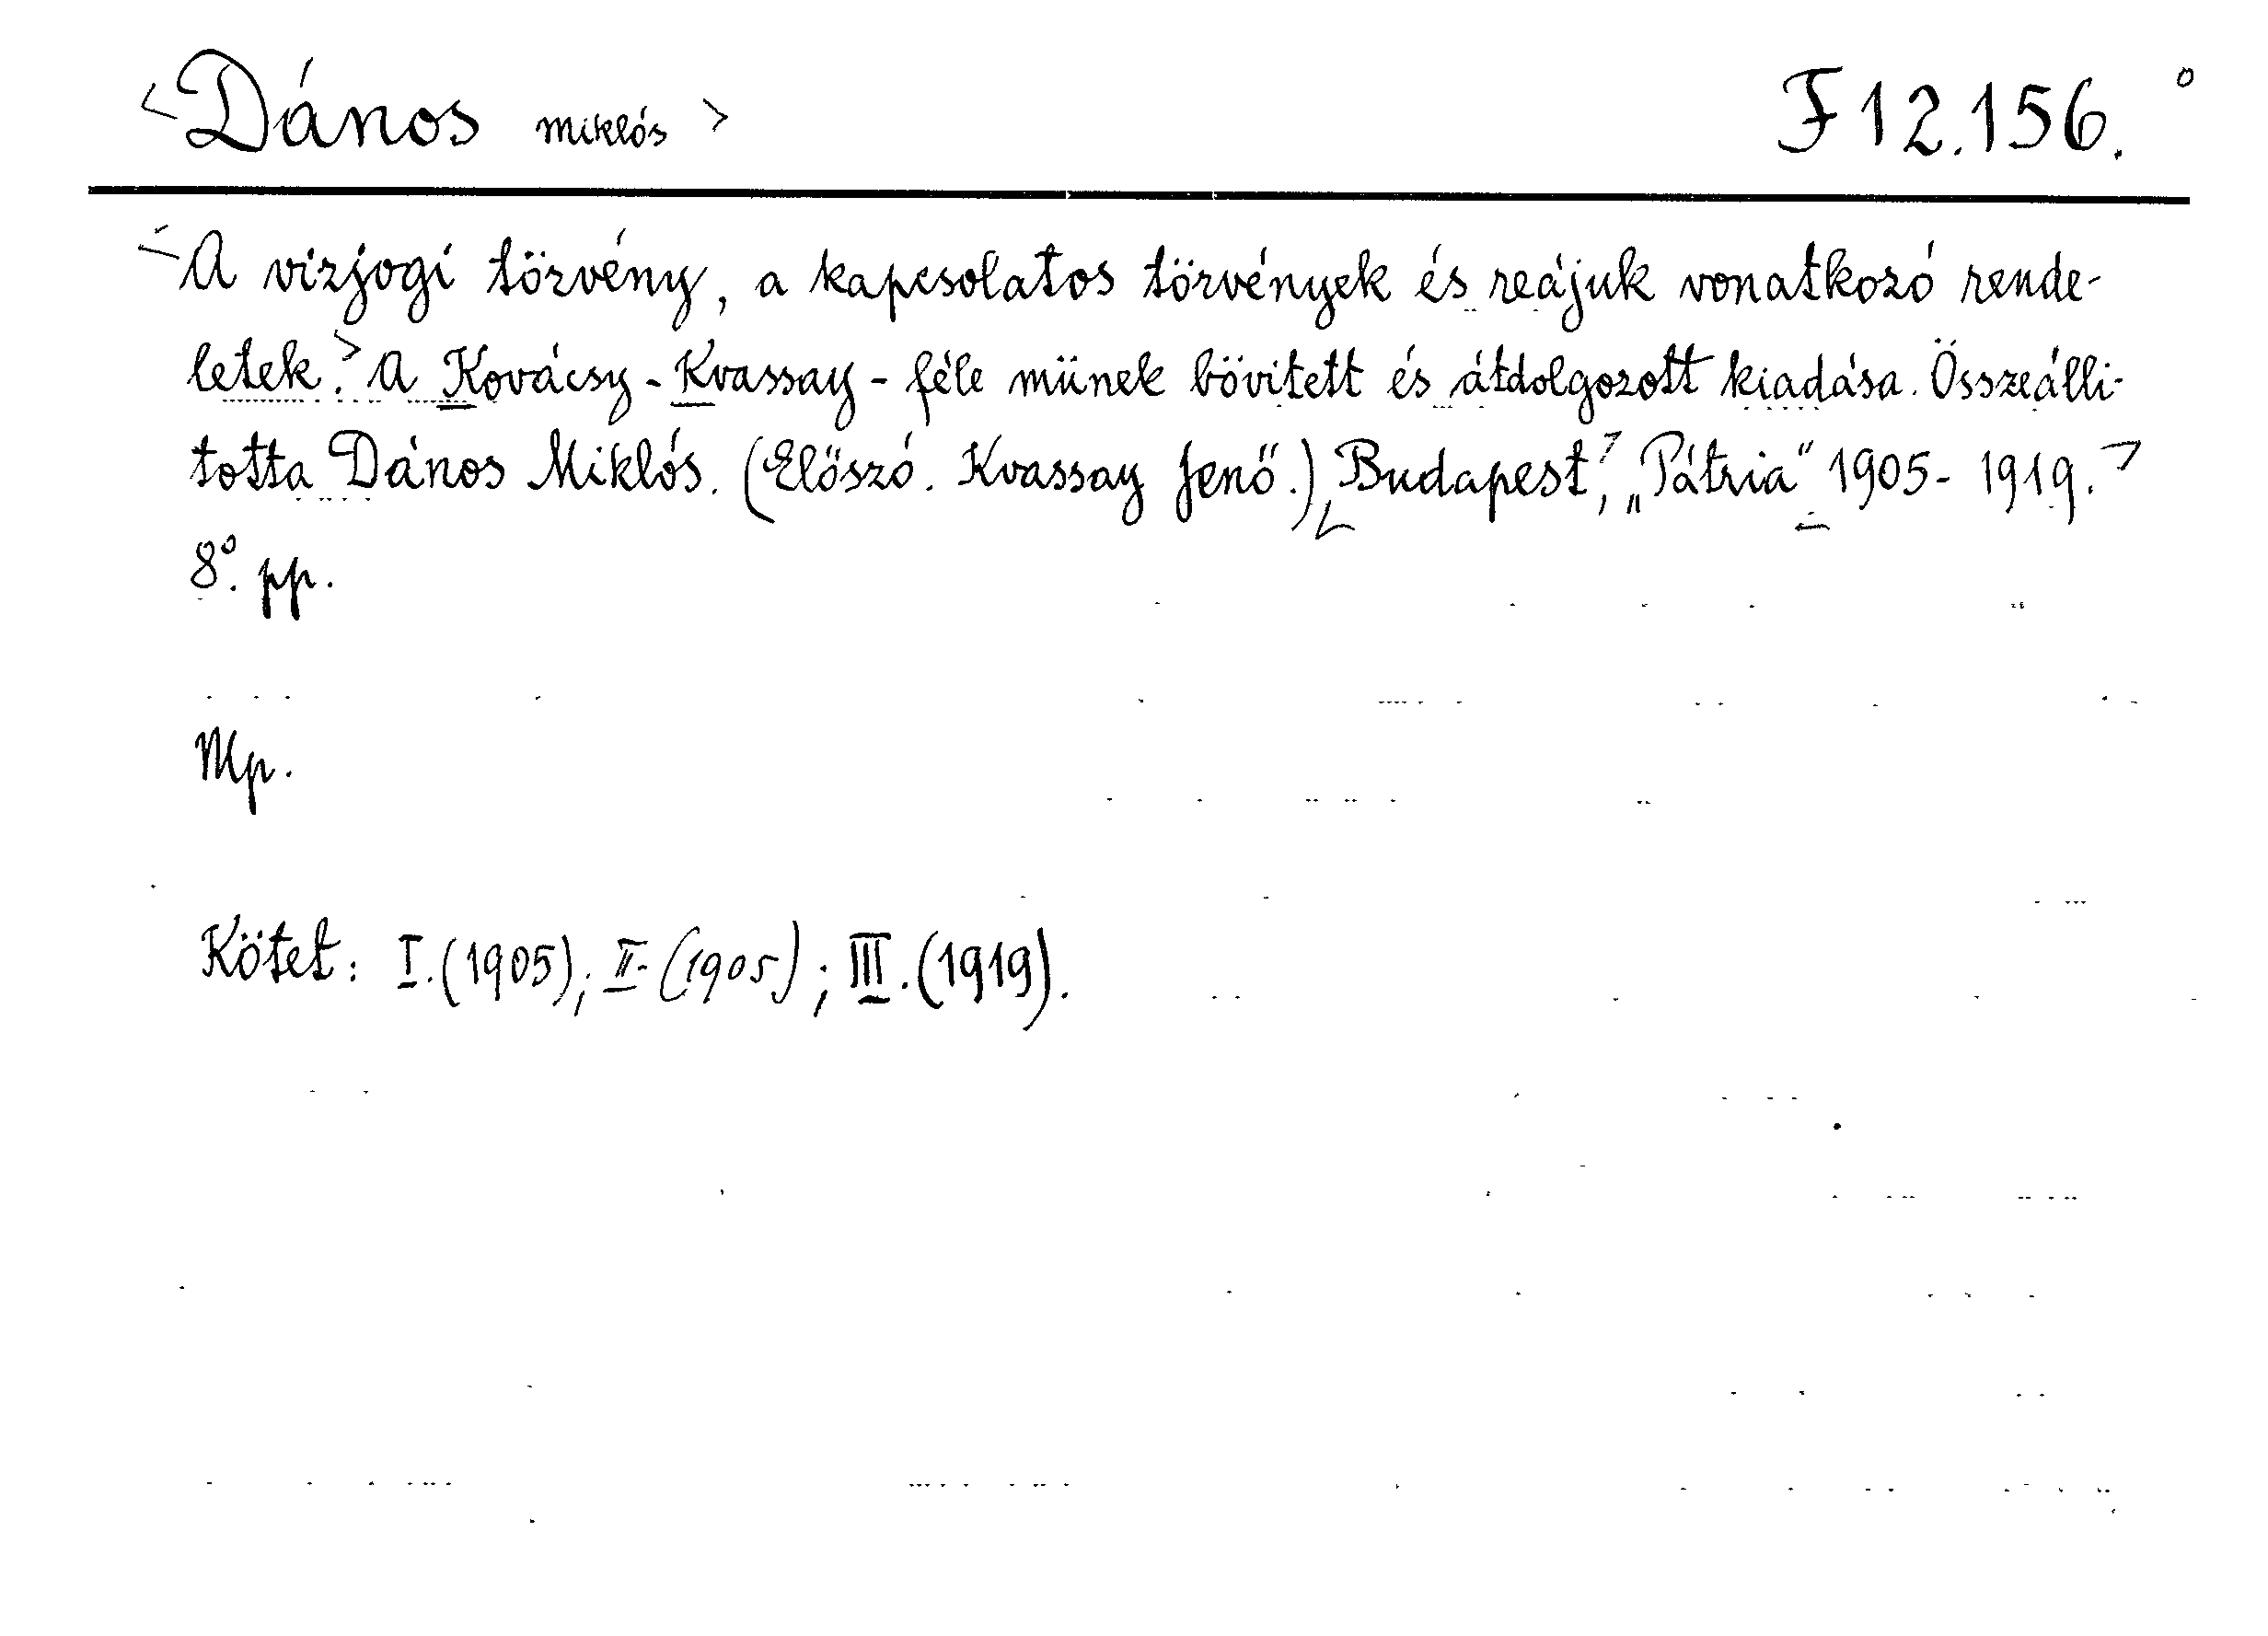 <Dános Miklós> F 12.156.°
<A vizjogi törvény, a kapcsolatos törvények és reájuk vonatkozó rende-
letek.> A Kovácsy - Kvassay - féle münek bövitett és átdolgozott kiadása. Összeálli-
totta Dános Miklós. (Előszó. Kvassay Jenő.) <Budapest,> „Pátria" 1905- 1919.>
8°. pp.
Mp.
Kötet: I. (1905); II. (1905); III. (1919).